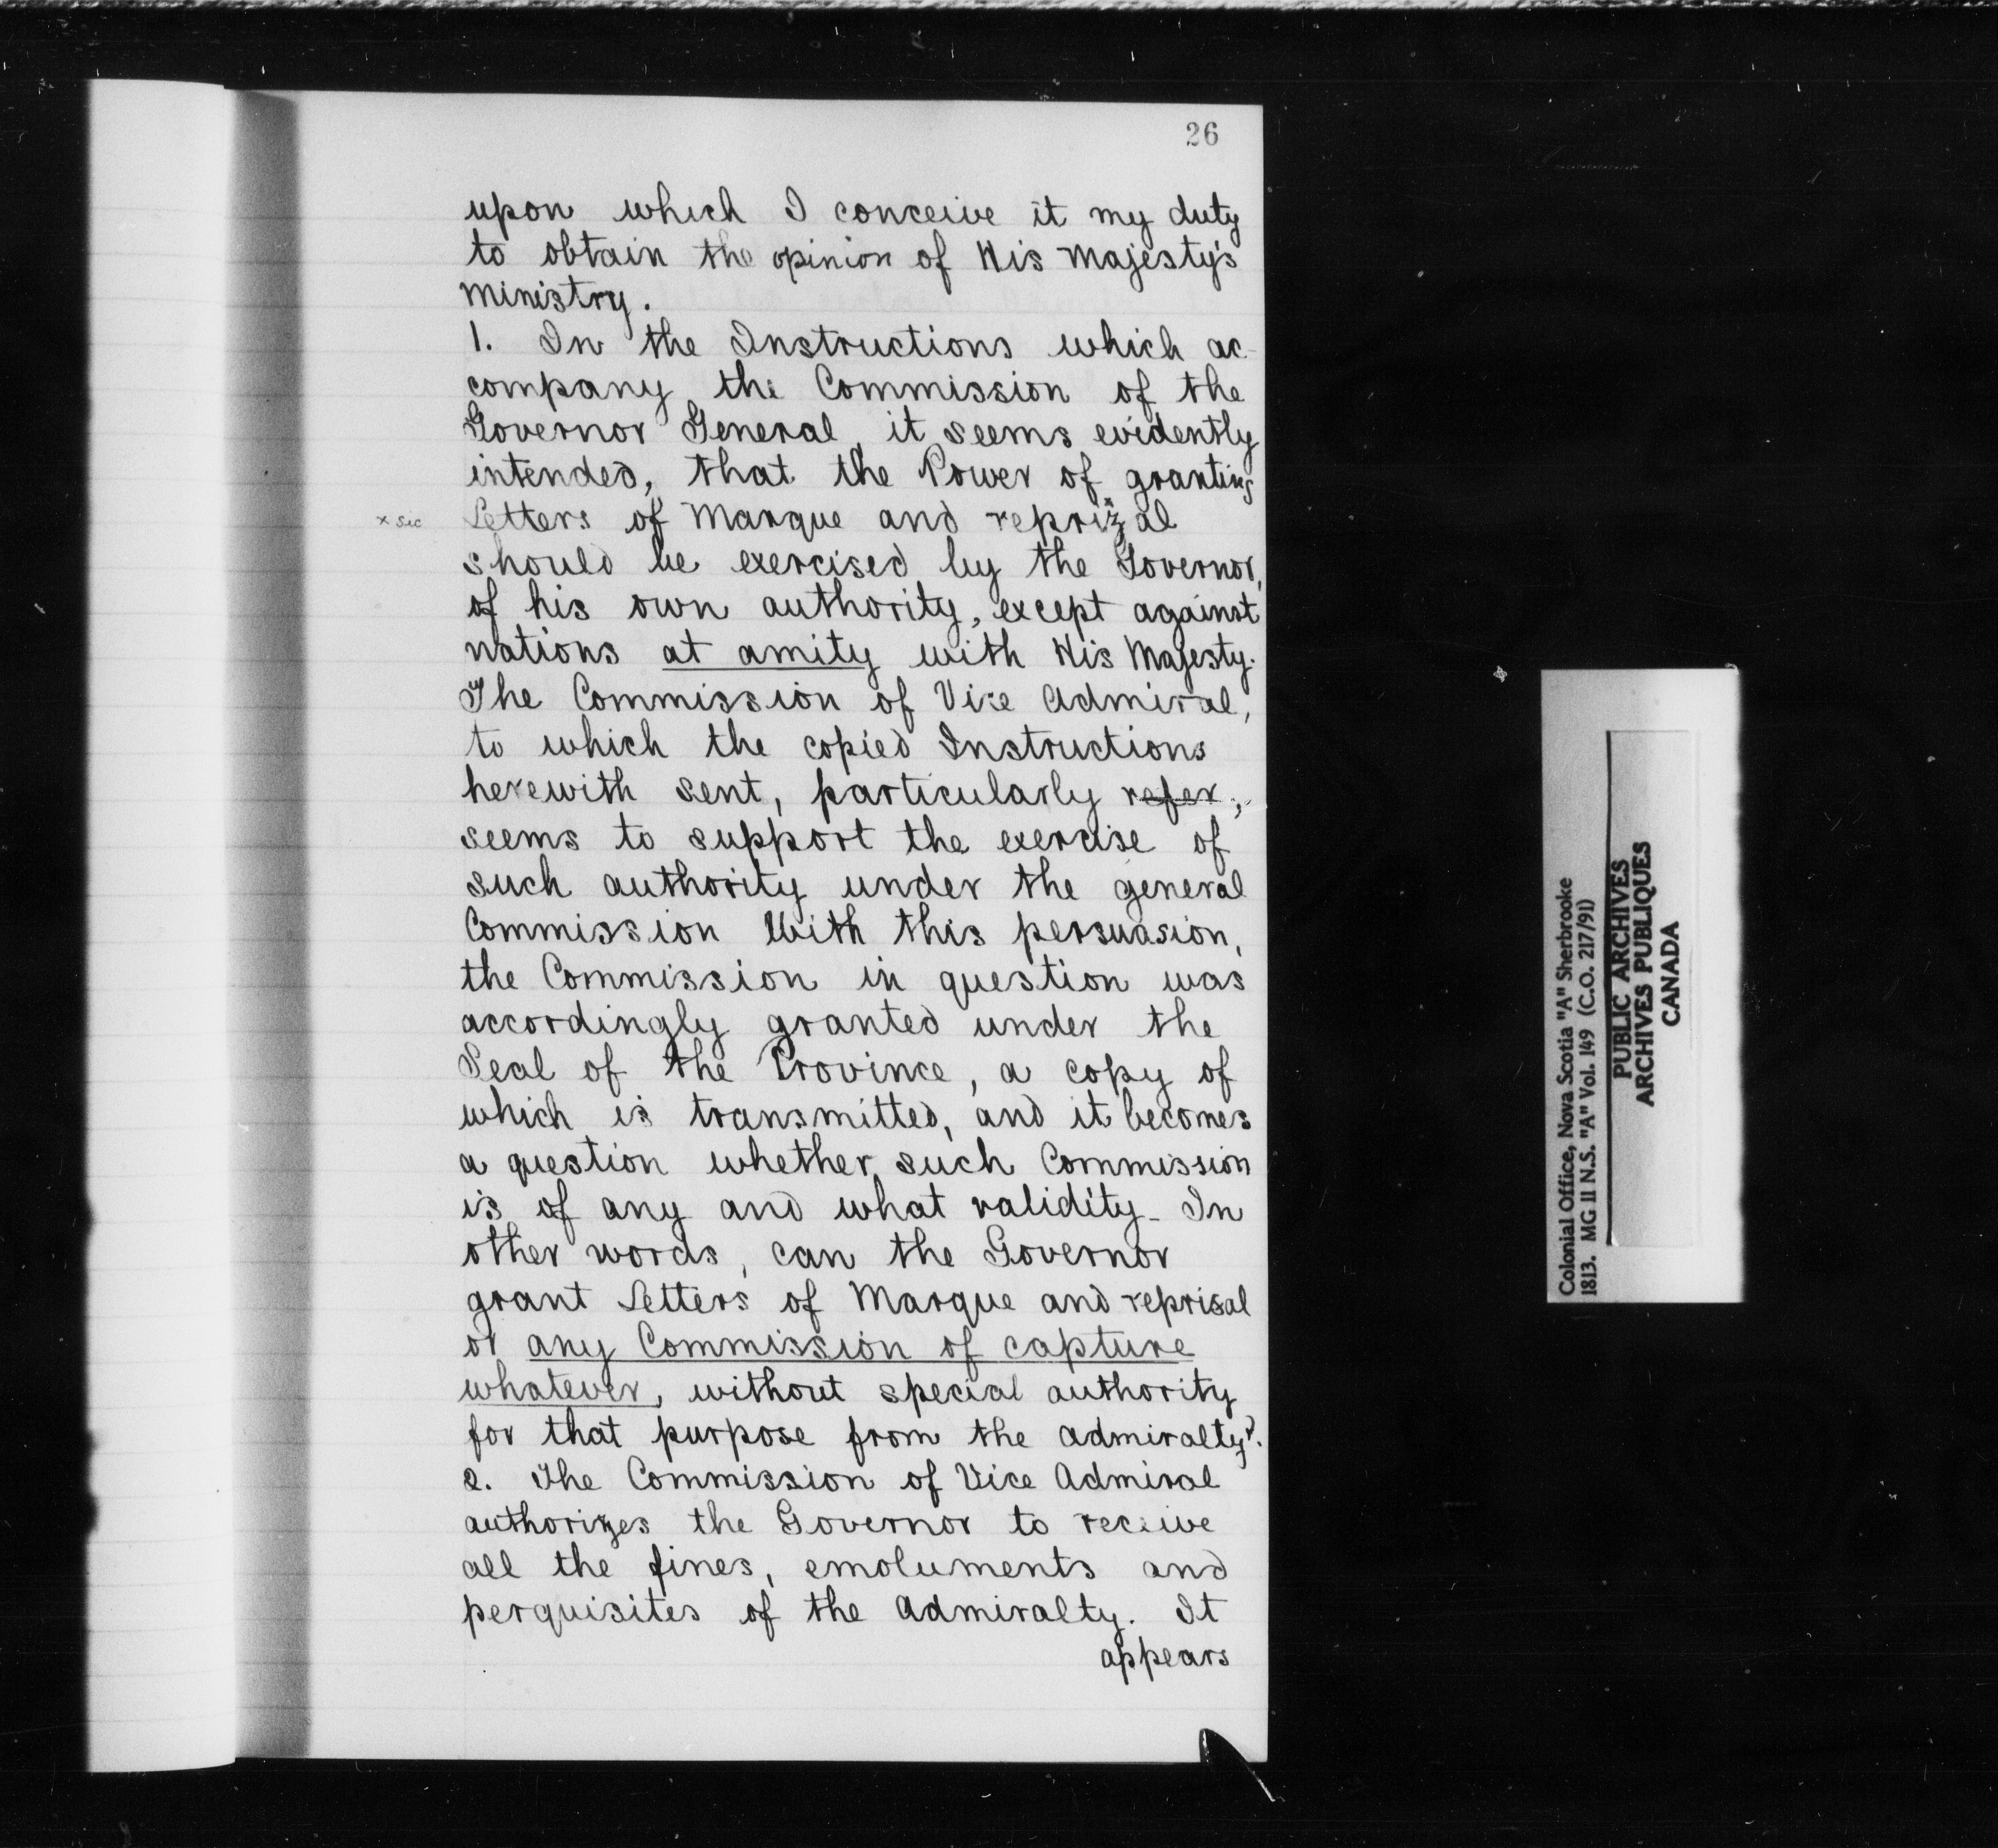 26
upon which I conceive it my duty
to obtain the opinion of His Majesty's
Ministry.
1. In the Instructions which ac-
company the Commission of the
Governor General, it seems evidently
intended, that the Power of granting
x sic
Letters of Marque and reprizxal
should be exercised by the Governor,
of his own authority, except against
nations at amity with His Majesty.
The Commission of Vice Admiral,
to which the copied Instructions
herewith sent, particularly refer,
seems to support the exercise of
such authority under the general
Commission With this persuasion,
the Commission in question was
accordingly granted under the
Seal of the Province, a copy of
which is transmitted, and it becomes
a question whether such Commission
is of any and what validity - In
other words, can the Governor
grant Letters of Marque and reprisal
or any Commission of capture
whatever, without special authority
for that purpose from the Admiralty?.
2. The Commission of Vice Admiral
authorizes the Governor to receive
all the fines, emoluments and
perquisites of the Admiralty. It
appears
Colonial Office, Nova Scotia "A" Sherbrooke
1813. MG II N.S. "A" Vol. 149 (C.O. 217/91)
PUBLIC ARCHIVES
ARCHIVES PUBLIQUES
CANADA